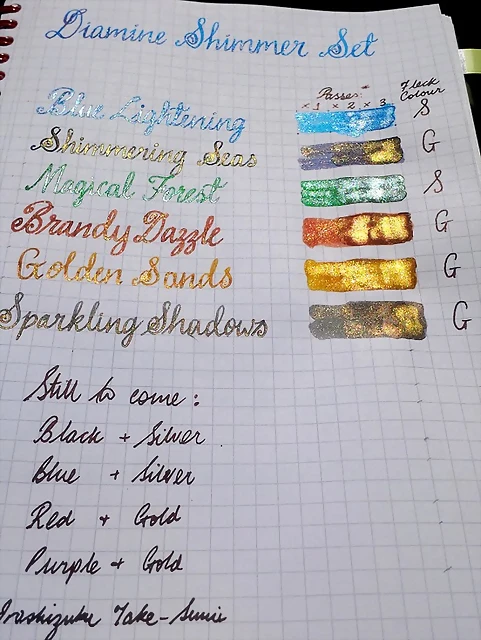 Diamine Shimmer Set
Passes: Fleck Colour
×1 ×2 ×3
Blue Lightening S
Shimmering Seas G
Magical Forest S
Brandy Dazzle G
Golden Sands G
Sparkling Shadows G
Still to come:
Black + Silver
Blue + Silver
Red + Gold
Purple + Gold
Iroshizuku Take-Sumi